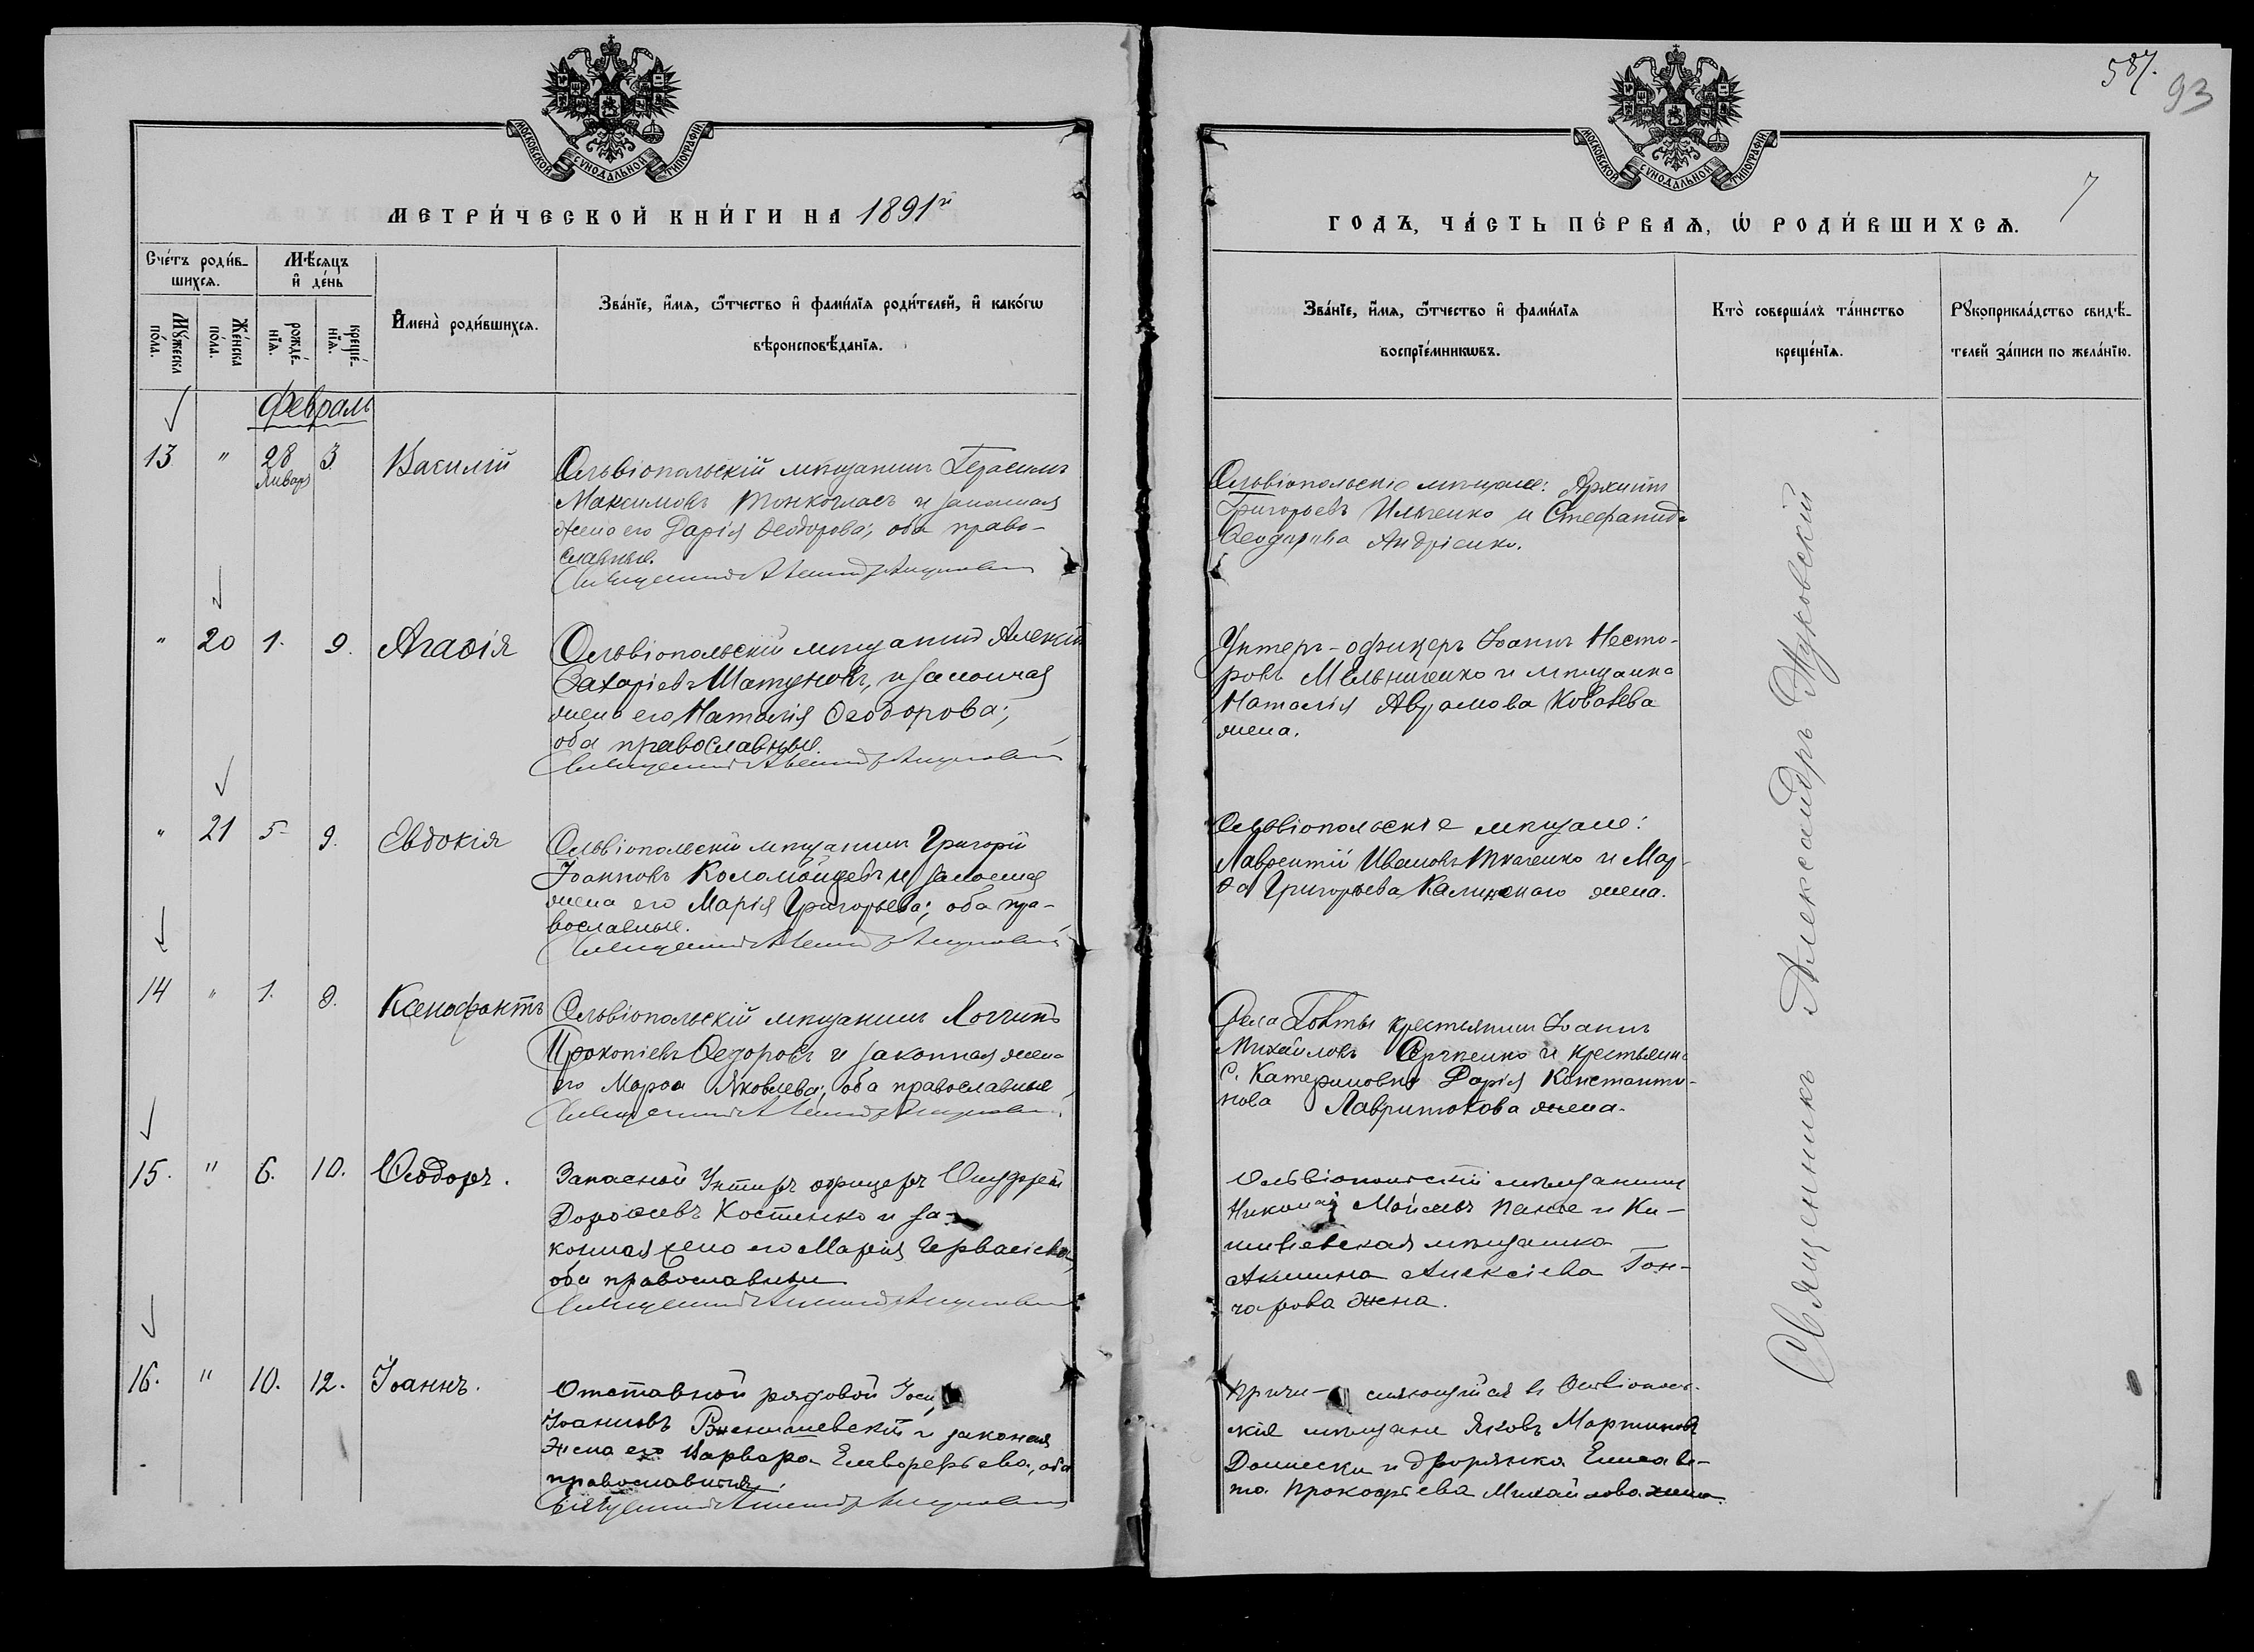 587.
93
МОСКОВСКОЙ СУНОДАЛЬНОЙ ТИПОГРАФІИ
МЕТРИ́ЧЕСКОЙ КНИ́ГИ НА 1891й
Сче́тъ роди́в-
шихсѧ.
Мѣ́сѧцъ
и҆ де́нь
Мꙋ́жеска
по́ла.
Же́нска
по́ла.
рожде́-
нїѧ.
креще́-
нїѧ.
И҆мена̀ роди́вшихсѧ.
Зва́нїе, и҆́мѧ, ѻ҆́тчество и҆ фами́лїѧ роди́телей, и҆ како́гѡ
вѣроисповѣ́данїѧ.
Февраль
13 " 28 Января 3. Василій
Ольвіопольскій мѣщанинъ Герасимъ
Максимовъ Тонкогласъ и законная
жена его Дарія Ѳеодорова; оба право-
славные.
Священникъ Александръ Жуковскій
" 20 1. 9. Агаѳія
Ольвіопольскій мѣщанинъ Алексій
Захаріевъ Шатуновъ, и законная
жена его Наталія Ѳеодорова;
оба православные.
Священникъ Александръ Жуковскій
" 21 5 9. Евдокія
Ольвіопольскій мѣщанинъ Григорій
Іоанновъ Коломойцевъ и законная
жена его Марія Григорьева; оба пра-
вославные.
Священникъ Александръ Жуковскій
14 " 1. 9. Ксенофонтъ
Ольвіопольскій мѣщанинъ Логгинъ
Прокопіевъ Ѳедоровъ и законная жена
его Марѳа Яковлева; оба православные
Священникъ Александръ Жуковскій
15. " 6. 10. Ѳеодоръ.
Запасной Унтеръ офицеръ Онуфрій
Дороѳеевъ Костенко и за-
конная жена его Марія Гервасіева,
оба православные
Священникъ Александръ Жуковскій
16. " 10. 12. Іоаннъ.
Отставной рядовой
Іоанновъ и законная
жена его Варвара оба
православные.
Священникъ Александръ Жуковскій
МОСКОВСКОЙ СУНОДАЛЬНОЙ ТИПОГРАФІИ
7
ГОДЪ, ЧА́СТЬ ПЕ́РВАѦ, Ѡ҆ РОДИ́ВШИХСѦ.
Зва́нїе, и҆́мѧ, ѻ҆́тчество и҆ фами́лїѧ
воспрїе́мникѡвъ.
Кто̀ соверша́лъ та́инство
креще́нїѧ.
Рꙋкоприкла́дство свидѣ́-
телей за́писи по жела́нїю.
Ольвіопольскіе мѣщане: Архипъ
Григорьевъ Ильченко и Стефанида
Ѳеодорова Андріенко.
Унтеръ-офицеръ Іоаннъ Несто-
ровъ Мельниченко и мѣщанка
Наталія Аврамова Ковалева
жена.
Ольвіопольскіе мѣщане:
Лаврентій Ивановъ Ткаченко и Мар-
ѳа Григорьева Калинскаго жена.
Села крестьянинъ Іоаннъ
Михайловъ и крестьянка
с. Катериновки Дарія Константи-
нова жена.
Ольвіопольскій мѣщанинъ
Николай и Ки-
шиневская мѣщанка
Акилина Алексіева Гон-
чарова жена.
Причи-сляющійся въ Ольвіополь-
скіе мѣщане Яковъ Мартиновъ
и дворянка Елисаве-
та Прокофьева Михайлова жена.
Священникъ Александръ Жуковскій